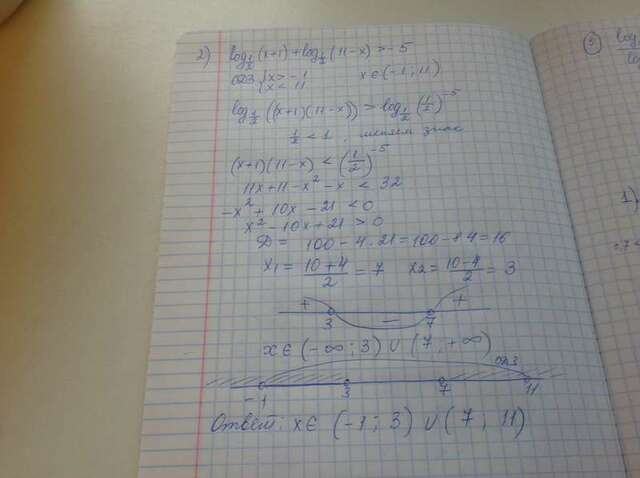 2) log½(x+1)+log½(11-x)>-5
ОДЗ { x>-1 x<11 x∈(-1; 11)
log½((x+1)(11-x))>log½(1/2)^-5
½<1, меняем знак
(x+1)(11-x)<(1/2)^-5
11x+11-x²-x<32
-x²+10x-21<0
x²-10x+21>0
D= 100-4·21=100-84=16
x1=(10+4)/2=7 x2=(10-4)/2=3
+ 3 - 7 +
x∈(-∞; 3)∪(7, +∞)
ОДЗ
-1 3 7 11
Ответ: x∈(-1; 3)∪(7; 11)
3) log
1)